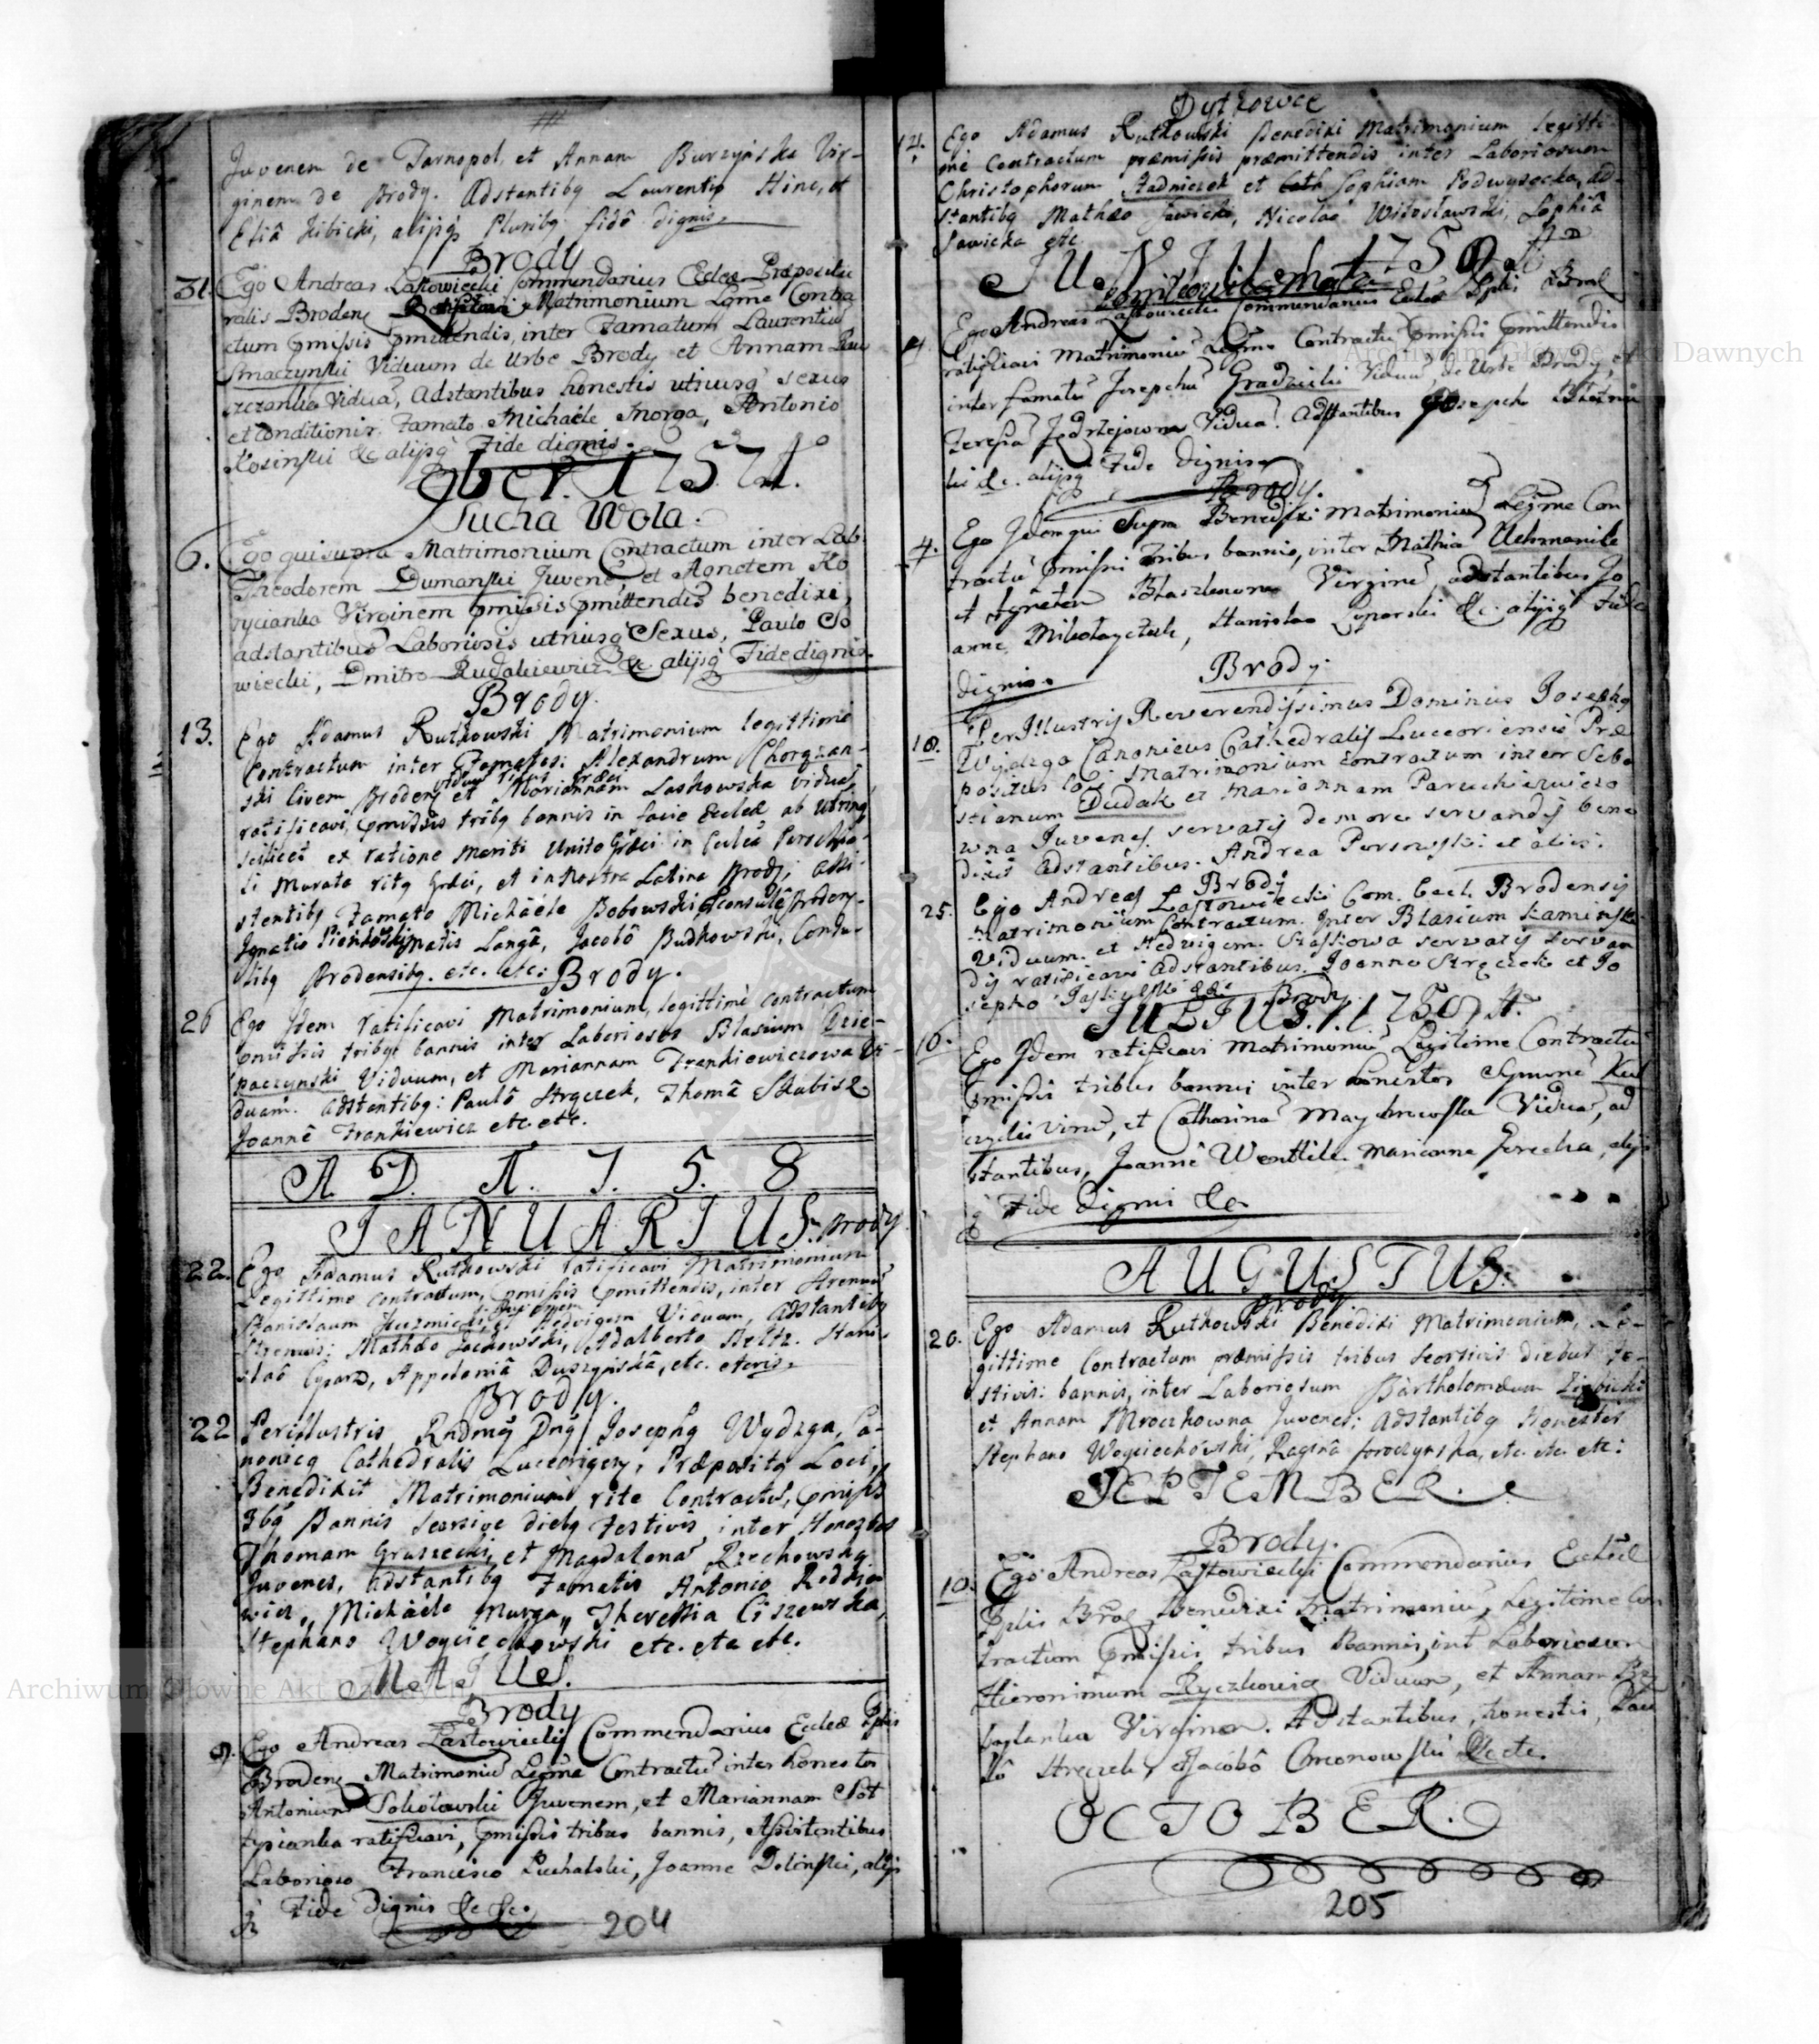 Juvenem de Tarnopol, et Annam Burzynska Vir-
ginem de Brody. Adstantibq Laurentio Hine, et
Eliâ Kibicki, alijsq Pluribq fidê dignis.
Brody
31. Ego Andreas Lastowiecki Commendarius Ecclae Praeposituralis
ralis Brodens Matrimonium Lgme Contra
ctum pmissis pmittendis, inter Famatum Laurentiu
Smaczynski Viduum de Urbe Brody et Annam
Viduã, Adstantibus honestis utriusq sexus
et Conditionis Famato Michaële Morga, Antonio
Kosinski &c alijsq Fide dignis.
9ber. 1757 A°
Sucha Wola.
6. Ego qui supra Matrimonium Contractum inter Lab:
Theodorem Dumanski Juvenê, et Agnetem Ko
rycianka Virginem pmissis pmittendis benedixi,
adstantibus Laboriosis utriusq Sexus, Paulo So
wiecki, Dmitro Rudakiewicz &c alijsq Fide dignis.
Brody.
13. Ego Adamus Rutkowski Matrimonium legittime
Contractum inter Famatos: Alexandrum Chorzan-
viduum ritus graeci
ski Civem Brodens et Mariannam Laskowska viduas
ratificavi, pmissis tribq bannis in facie Ecclae ab utrinq
scilicet ex ratione Uniti in Ecclea Parochia-
li Murata ritq Graeci, et in Nostra Latina Brody, assi-
stentibq Famato Michaële Bobowski Proconsule Brodens-
Ignatio Pienkowski Langâ, Jacobô Budkowski, Consu-
libq Brodensibq. etc. etc: Brody.
26 Ego Idem ratificavi Matrimonium, legittimè contractum
pmissis tribq bannis inter Laboriosos Blasium Szcze-
paczynski Viduum, et Mariannam Frankiewiczowa Vi-
duam. Adstantibq: Paulô Stręczek, Thomâ Skabisz
Joannê Frankiewicz etc. etc.
A. D. A. 1. 7. 5. 8
JANUARIUS. Brody
22. Ego Adamus Rutkowski ratificavi Matrimonium
Legittime contractum, pmissis pmittendis, inter Strenuû
Stanislaum Kuzmicki, et Hedvigem Viduam, Adstantibq
Strenuis: Mathaeo Jackowski, Adalberto Stani-
slaô Cygarz, Appoloniâ Duszynskâ, etc. eteris.
Brody.
22 Perillustris Rndmq Dnq Josephq Wydzga, Ca-
nonicq Cathedralis Luceoriensy, Praepositq Loci,
Benedixit Matrimonium rite Contractû, pmissis
3bq Bannis seorsive diebq Festivis inter Honestos
Thomam Gruszecki, et Magdalenâ Rzechowska
Juvenes, adstantibq Famatis Antonio Rodkie
wicz, Michaële Murga, Theressia Ciszewska,
Stephano Woyciechowski etc. etc etc.
MAJUS.
Brody
9. Ego Andreas Lastowiecki Commendarius Ecclae Pplis
Brodens Matrimoniû Legme Contractû inter honestos
Antonium Sokolowski Juvenem, et Mariannam Pot
typianka ratificavi, pmissis tribus bannis, Assistentibus
Laborioso Francisco Puchalski, Joanne Dolinski, alijs
q Fide Dignis &c &c.
204
Dytkowce
14. Ego Adamus Rutkowski Benedixi Matrimonium legitti-
me Contractum praemissis praemittendis inter Laboriosum
Christophorum Zadniczek et Sophiam Podwysocka, ad-
stantibq Mathaeo Sawicki, Nicolaô Witoslawski, Sophiâ
Sawicka etc.
JUNIUS 1758 A°
4 Ego Andreas Lastowiecki Commendarius Ecclae Pplis Brod
ratificavi Matrimoniû Legme Contractû pmissis pmittendis
inter famatû Josephû Gradzicki Viduû, de Urbe Brody, et
Teresiâ Jędrzejowna Viduâ. Adstantibus Joseph
ki &c. alijsq Fide Dignis
Brody.
4. Ego Idem qui Supra Benedixi Matrimoniû Legme Con
tractû pmissis tribus bannis, inter Mathia Uchmanik
et Agneten Blaszkowna Virginê, adstantibus Jo
anne Mikolayczuk, Stanislao Lyparski &c. alijsq Fide
dignis.
Brody.
18. PerIllustris Reverendissimus Dominus Josephq
Wydzga Canonicus Cathedralis Luceoriensis Prae
positus Loci Matrimonium Contractum inter Seba
stianum Dudak et Mariannam Paruchiewiczo
wna Juvenes servatis de more servandis bene
dixit adstantibus. Andrea Persowski et aliis.
Brody
25. Ego Andreas Lastowiecki Com. Eccl. Brodensis
Matrimonium Contractum. Inter Blasium Kaminski
Viduum. et Hedvigem. Staskowa servatis servan
dis ratificavi adstantibus. Joanne Stręczek et Jo
sepho &c.
Brody
JULIUS. 1758 A°
16. Ego Idem ratificavi Matrimoniû Legitime Contractû
pmissis tribus bannis inter honestos Symonê Kul
czycki Virû, et Catharinâ Maychrowska Viduâ, ad
stantibus, Joanne Wentlik. Marianna Gorecka, alijs
q Fide Digni &c.
AUGUSTUS.
Brody
20. Ego Adamus Rutkowski Benedixi Matrimonium, Le-
gittime Contractum praemissis tribus seorsivis diebus fe-
stivis: bannis, inter Laboriosum Bartholomaeum Zięblicki
et Annam Mroczkowna Juvenes: Adstantibq Honestis
Stephano Woyciechowski, Raginâ Aroczynska, etc. etc. etc:
SEPTEMBER.
Brody.
10. Ego Andreas Lastowiecki Commendarius Ecclae
Pplis Brod Benedixi Matrimoniû, Legitime Con
tractum pmissis tribus Bannis, int Laboriosum
Hieronimum Ryczkowicz Viduum, et Annam
Virginem. Adstantibus, honestis, Pau
lô Stręczek, Jacobô Omonowski &c etc.
OCTOBER.
205
Archiwum Główne Akt Dawnych
Archiwum Główne Akt Dawnych